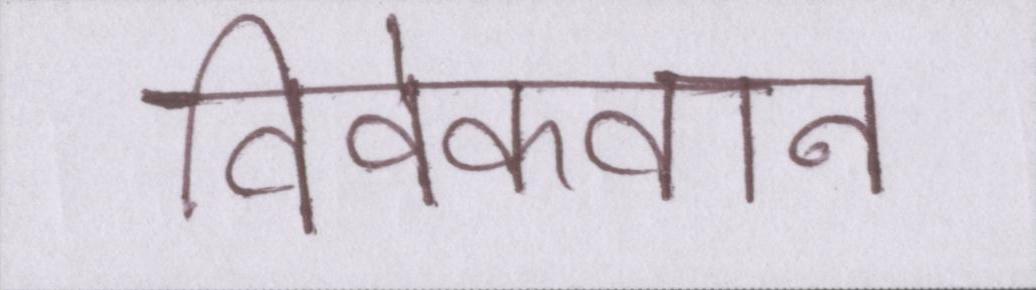 विवेकवान